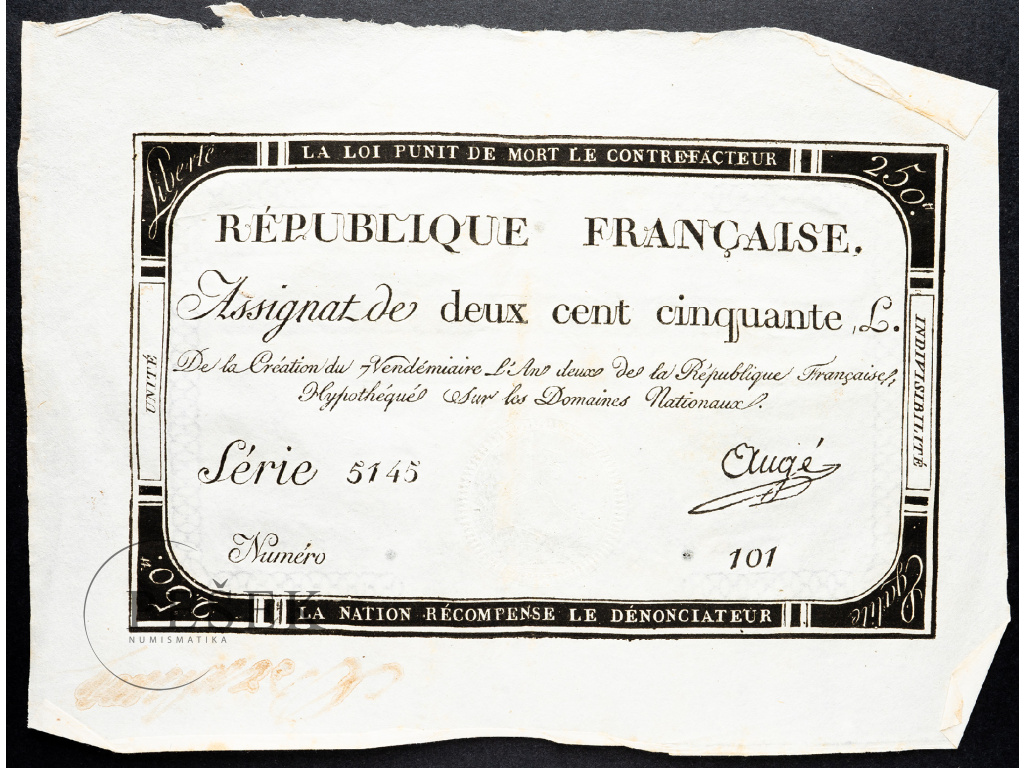 LA LOI PUNIT DE MORT LE CONTREFACTEUR
Liberté
250.tt
RÉPUBLIQUE FRANÇAISE.
Assignat de deux cent cinquante L.
De la Création du 7 Vendémiaire L'An deux de la République Française,
Hypothéqué Sur les Domaines Nationaux.
UNITÉ
INDIVISIBILITÉ
Série 5145
Augé
Numéro 101
250.tt
Egalité
LA NATION RÉCOMPENSE LE DÉNONCIATEUR
LEŠEK
NUMISMATIKA